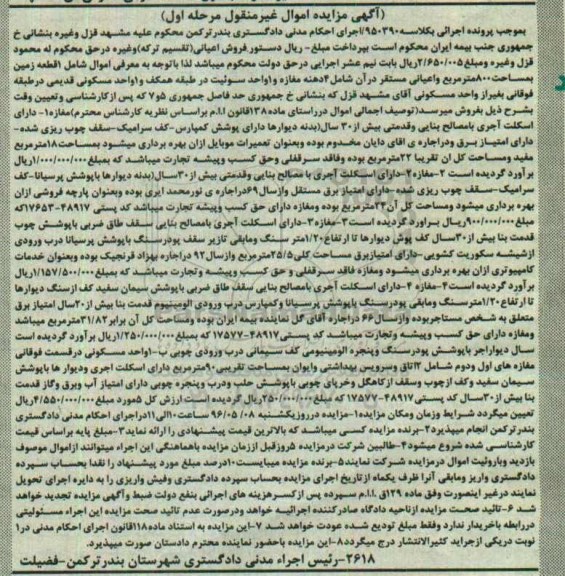 (آگهی مزایده اموال غیرمنقول مرحله اول)
بموجب پرونده اجرائی بکلاسه ۹۵۰۳۹۰/اجرای احکام مدنی دادگستری بندرترکمن محکوم علیه مشهد قزل وغیره بنشانی خ
جمهوری جنب بیمه ایران محکوم است بپرداخت مبلغ- ریال دستور فروش اعیانی(تقسیم ترکه)وغیره درحق محکوم له محمود
قزل وغیره ومبلغ ۲/۶۵۰/۰۰۵ریال بابت نیم عشر اجرایی درحق دولت محکوم میباشد لذا باتوجه به معرفی اموال شامل ۱قطعه زمین
بمساحت ۸۰۰مترمربع واعیانی مستقر در آن شامل ۴دهنه مغازه و۱واحد سوئیت در طبقه همکف و۱واحد مسکونی قدیمی درطبقه
فوقانی بغیراز واحد مسکونی آقای مشهد قزل که بنشانی خ جمهوری حد فاصل جمهوری ۵و۷ که پس ازکارشناسی وتعیین وقت
بشرح ذیل بفروش میرسد(توصیف اجمالی اموال درراستای ماده ۱۳۸قانون ا.ا.م براساس نظریه کارشناس محترم)مغازه۱- دارای
اسکلت آجری بامصالح بنایی وقدمتی بیش از۳۰ سال(بدنه دیوارها دارای پوشش کمپارس-کف سرامیک-سقف چوب ریزی شده-
دارای امتیاز برق ودراجاره ی اقای دایان مخدوم بوده وبعنوان تعمیرات موبایل ازان بهره برداری میشود بمساحت۱۸مترمربع
مفید ومساحت کل ان تقریبا ۲۲مترمربع بوده وفاقد سرقفلی وحق کسب وپیشه تجارت میباشدکه بمبلغ ۱/۰۰۰/۰۰۰/۰۰۰ریال
برآورد گردیده است ۲-مغازه۲-دارای اسکلت آجری با مصالح بنایی وقدمتی بیش از۳۰سال(بدنه دیوارها باپوشش پرسیانا-کف
سرامیک-سقف چوب ریزی شده -دارای امتیاز برق مستقل وازسال۶۹دراجاره ی نورمحمد ایری بوده وبعنوان پارچه فروشی ازان
بهره برداری میشود ومساحت کل آن۲۳مترمربع بوده ومغازه دارای حق کسب وپیشه تجارت میباشدکد پستی ۴۸۹۱۷-۱۷۶۵۳که
مبلغ ۹۰۰/۰۰۰/۰۰۰ریال براورد گردیده است۳-مغازه۳-دارای اسکلت آجری بامصالح بنایی سقف طاق ضربی باپوشش چوب
قدمت بنا بیش از۳۰سال کف پوش دیوارها تا ارتفاع۱/۲۰متر سنگ ومابقی تازیر سقف پودرسنگ باپوشش پرسیانا درب ورودی
ازشیشه سکوریت کشویی-دارای امتیازبرق مساحت کلی۲۵/۵مترمربع وازسال۹۲ دراجاره بهزاد قرنجیک بوده وبعنوان خدمات
کامپیوتری ازان بهره برداری میشود ومغازه فاقد سرقفلی و حق کسب وپیشه وتجارت میباشد که بمبلغ۱/۱۵۷/۵۰۰/۰۰۰ریال
برآورد گردیده است۴-مغازه ۴-دارای اسکلت آجری بامصالح بنایی سقف طاق ضربی باپوشش سیمان سفید کف ازسنگ دیوارها
تا ارتفاع۱/۲۰مترسنگ ومابقی پودرسنگ باپوشش پرسیانا وکمپارس درب ورودی الومینیوم قدمت بنا بیش از۲۰سال امتیاز برق
متعلق به شخص مستاجربوده وازسال۶۶دراجاره آقای گل نماینده بیمه ایران بوده ومساحت کل آن برابر۳۱/۸۲مترمربع میباشد
ومغازه دارای حق کسب وپیشه وتجارت میباشد کد پستی۴۸۹۱۷-۱۷۵۷۷ که بمبلغ۱/۲۵۰/۰۰۰/۰۰۰ریال برآورد گردیده است
سال دیواراجر باپوشش پودرسنگ وپنجره الومینیومی کف سیمانی درب ورودی چوبی ب-۱واحد مسکونی درقسمت فوقانی
مغازه های اول ودوم شامل ۲اتاق وسرویس بهداشتی وایوان بمساحت تقریبی۹۰مترمربع دارای اسکلت اجری ودیوار ها باپوشش
سیمان سفید وکف ازچوب وسقف ازکاهگل وخرپای چوبی باپوشش حلب ودرب وپنجره چوبی دارای امتیاز آب وبرق وگاز قدمت
بنا بیش از۳۰سال کد پستی ۴۸۹۱۷-۱۷۵۷۷ که بمبلغ ۲۵۰/۰۰۰/۰۰۰ریال گردیده است ارزش کل ۵مورد مبلغ ۴/۵۵۰/۰۰۰/۰۰۰ریال
تعیین میگردد شرایط وزمان ومکان مزایده۱-مزایده درروزیکشنبه ۹۶/۰۵/۰۸ ساعت۱۰الی۱۱دراجرای احکام مدنی دادگستری
بندرترکمن انجام میپذیرد۲-برنده مزایده کسی میباشد که بالاترین قیمت پیشنهادی را ارائه نماید۳-مبلغ پایه براساس قیمت
کارشناسی شده شروع میشود۴-طالبین شرکت درمزایده ۵روزقبل اززمان مزایده باهماهنگی این اجراء میتوانند ازاموال موصوف
بازدید وباروئیت اموال درمزایده شرکت نمایند۵-برنده مزایده میبایست۱۰درصد مبلغ مورد پیشنهاد را نقدا بحساب سپرده
دادگستری واریز ومابقی آنرا ظرف یکماه ازتاریخ اجرای مزایده بحساب سپرده دادگستری وفیش واریزی را به دایره اجرای تحویل
نمایند درغیر اینصورت وفق ماده ۱۲۹ق .ا.ا.م سپرده پس ازکسرهزینه های اجرائی بنفع دولت ضبط وآگهی مزایده تجدید خواهد
شد ۶-تائید صحت مزایده ازناحیه دادگاه صادرکننده اجرائیه خواهد بودرصورت عدم تائید صحت مزایده این اجراء مسئولیتی
دررابطه باخریدار ندارد وفقط مبلغ تودیع شده عودت خواهد شد ۷-این مزایده به استناد ماده۱۱۸قانون اجرای احکام مدنی در۱
نوبت دریکی ازجراید کثیرالانتشار درج میگردد۸-این مزایده باحضور نماینده محترم دادستان صورت میپذیرد.
۲۶۱۸-رئیس اجراء مدنی دادگستری شهرستان بندرترکمن-فضیلت